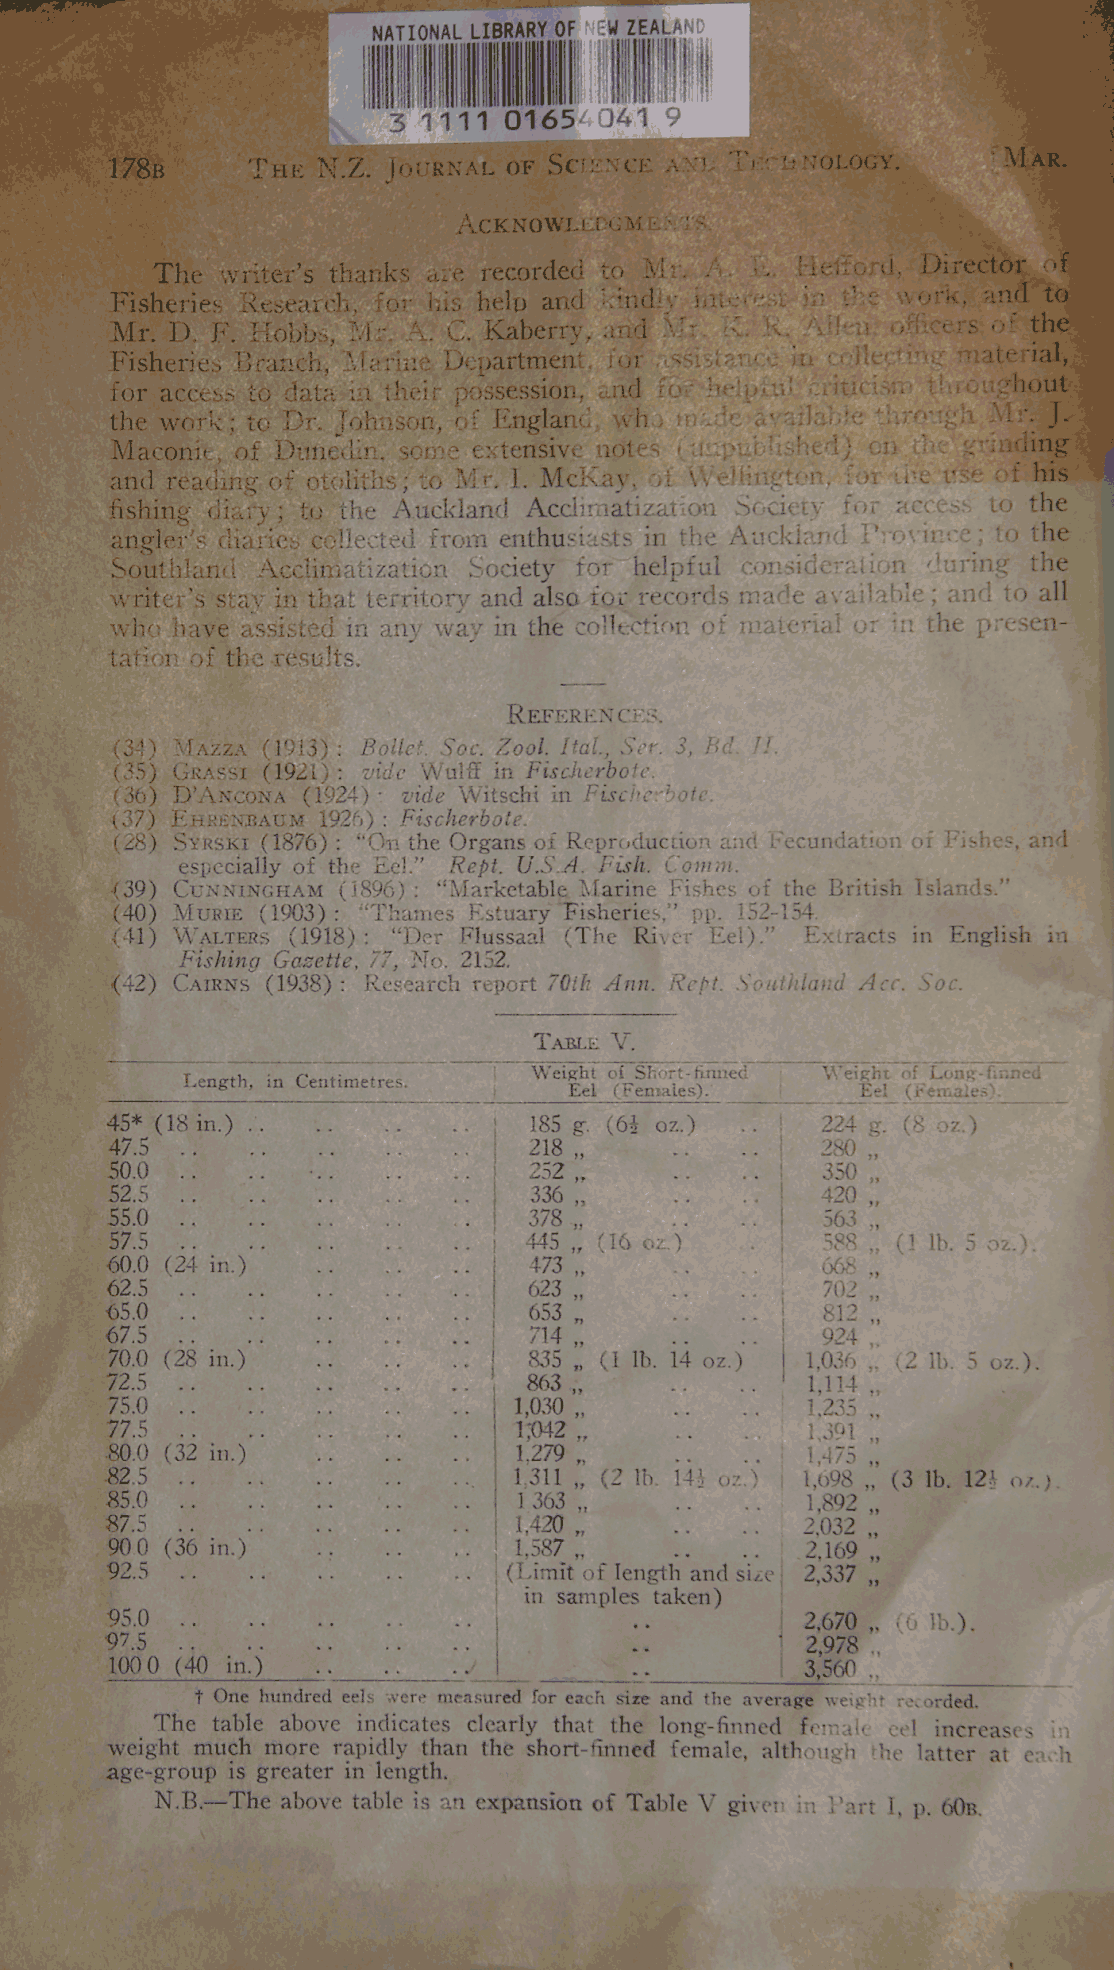 NATIONAL LIBRARY OF NEW ZEALAND
3 1111 01654041 9
178B THE N.Z. JOURNAL OF SCIENCE AND TECHNOLOGY. [MAR.
ACKNOWLEDGMENTS.
The writer's thanks are recorded to Mr. A. E. Hefford, Director of
Fisheries Research, for his help and kindly interest in the work, and to
Mr. D. F. Hobbs, Mr. A. C. Kaberry, and Mr. K. R. Allen, officers of the
Fisheries Branch, Marine Department, for assistance in collecting material,
for access to data in their possession, and for helpful criticism throughout
the work; to Dr. Johnson, of England, who made available through Mr. J.
Maconie, of Dunedin, some extensive notes (unpublished) on the grinding
and reading of otoliths; to Mr. I. McKay, of Wellington, for the use of his
fishing diary; to the Auckland Acclimatization Society for access to the
angler's diaries collected from enthusiasts in the Auckland Province; to the
Southland Acclimatization Society for helpful consideration during the
writer's stay in that territory and also for records made available; and to all
who have assisted in any way in the collection of material or in the presen-
tation of the results.
REFERENCES.
(34) MAZZA (1913): Bollet. Soc. Zool. Ital., Ser. 3, Bd. II.
(35) GRASSI (1921): vide Wulff in Fischerbote.
(36) D'ANCONA (1924): vide Witschi in Fischerbote.
(37) EHRENBAUM 1926): Fischerbote.
(28) SYRSKI (1876): "On the Organs of Reproduction and Fecundation of Fishes, and
especially of the Eel." Rept. U.S.A. Fish. Comm.
(39) CUNNINGHAM (1896): "Marketable Marine Fishes of the British Islands."
(40) MURIE (1903): "Thames Estuary Fisheries," pp. 152-154.
(41) WALTERS (1918): "Der Flussaal (The River Eel)." Extracts in English in
Fishing Gazette, 77, No. 2152.
(42) CAIRNS (1938): Research report 70th Ann. Rept. Southland Acc. Soc.
TABLE V.
Length, in Centimetres. Weight of Short-finned Eel (Females). Weight of Long-finned Eel (Females).
45* (18 in.) .. .. .. .. 185 g. (6½ oz.) .. 224 g. (8 oz.)
47.5 .. .. .. .. .. 218 „ .. .. 280 „
50.0 .. .. .. .. .. 252 „ .. .. 350 „
52.5 .. .. .. .. .. 336 „ .. .. 420 „
55.0 .. .. .. .. .. 378 „ .. .. 563 „
57.5 .. .. .. .. .. 445 „ (16 oz.) .. 588 „ (1 lb. 5 oz.).
60.0 (24 in.) .. .. .. 473 „ .. .. 668 „
62.5 .. .. .. .. .. 623 „ .. .. 702 „
65.0 .. .. .. .. .. 653 „ .. .. 812 „
67.5 .. .. .. .. .. 714 „ .. .. 924 „
70.0 (28 in.) .. .. .. 835 „ (1 lb. 14 oz.) 1,036 „ (2 lb. 5 oz.).
72.5 .. .. .. .. .. 863 „ .. .. 1,114 „
75.0 .. .. .. .. .. 1,030 „ .. .. 1,235 „
77.5 .. .. .. .. .. 1,042 „ .. .. 1,391 „
80.0 (32 in.) .. .. .. 1,279 „ .. .. 1,475 „
82.5 .. .. .. .. .. 1,311 „ (2 lb. 14½ oz.) 1,698 „ (3 lb. 12½ oz.).
85.0 .. .. .. .. .. 1 363 „ .. .. 1,892 „
87.5 .. .. .. .. .. 1,420 „ .. .. 2,032 „
90 0 (36 in.) .. .. .. 1,587 „ .. .. 2,169 „
92.5 .. .. .. .. .. (Limit of length and size 2,337 „
in samples taken)
95.0 .. .. .. .. .. .. 2,670 „ (6 lb.).
97.5 .. .. .. .. .. .. 2,978 „
100 0 (40 in.) .. .. .. .. 3,560 „
† One hundred eels were measured for each size and the average weight recorded.
The table above indicates clearly that the long-finned female eel increases in
weight much more rapidly than the short-finned female, although the latter at each
age-group is greater in length.
N.B.—The above table is an expansion of Table V given in Part I, p. 60B.